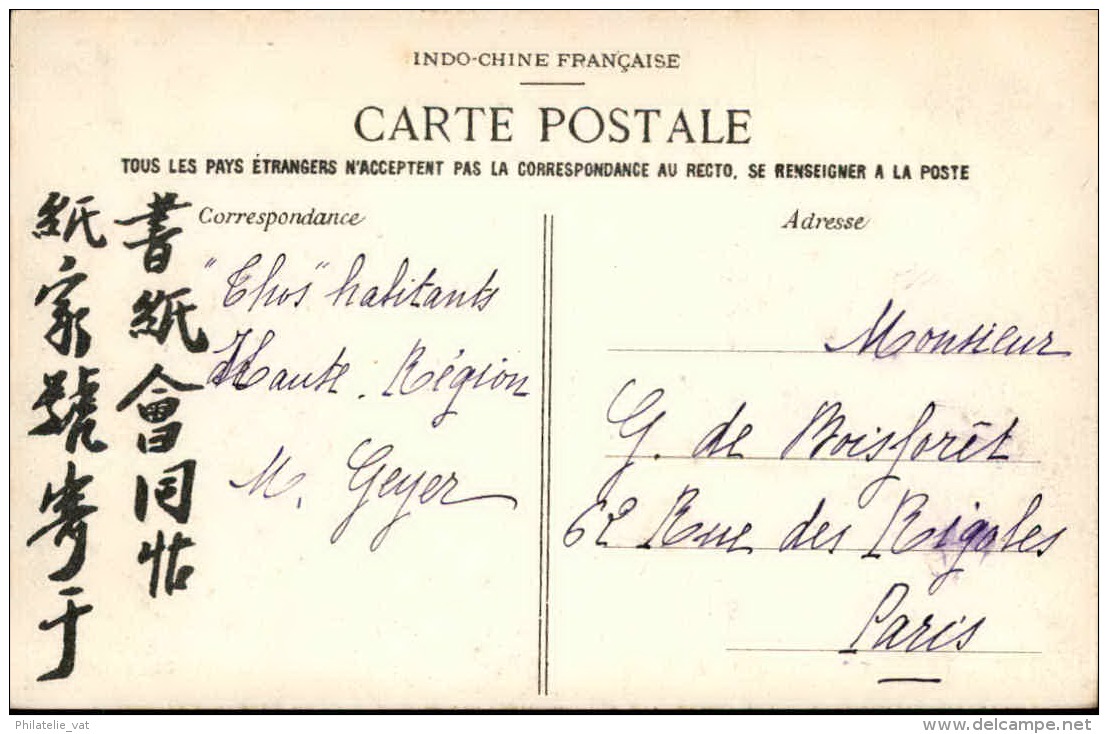 INDO-CHINE FRANÇAISE
CARTE POSTALE
TOUS LES PAYS ÉTRANGERS N'ACCEPTENT PAS LA CORRESPONDANCE AU RECTO, SE RENSEIGNER A LA POSTE
書紙會同帖
紙家號寄于
Correspondance
"Thos" habitants
Haute. Région
M. Geyer
Adresse
Monsieur
G. de Boisforêt
62 Rue des Rigoles
Paris
Philatelie_vat
delcampe.net